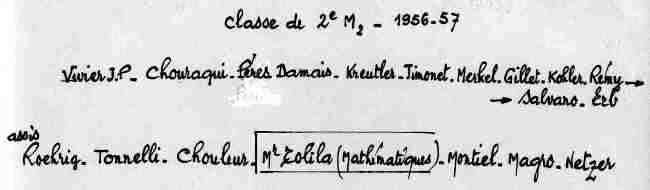 Classe de 2e M2 - 1956-57
Vivier J.P - Chouraqui - Péres Damais - Kreutler - Timonet - Merkel - Gillet - Kohler - Rémy →
→ Salvans - Erb
assis
Roehrig - Tonnelli - Chouleur - Mr Zolila (Mathématiques) - Montiel - Magro - Netzer